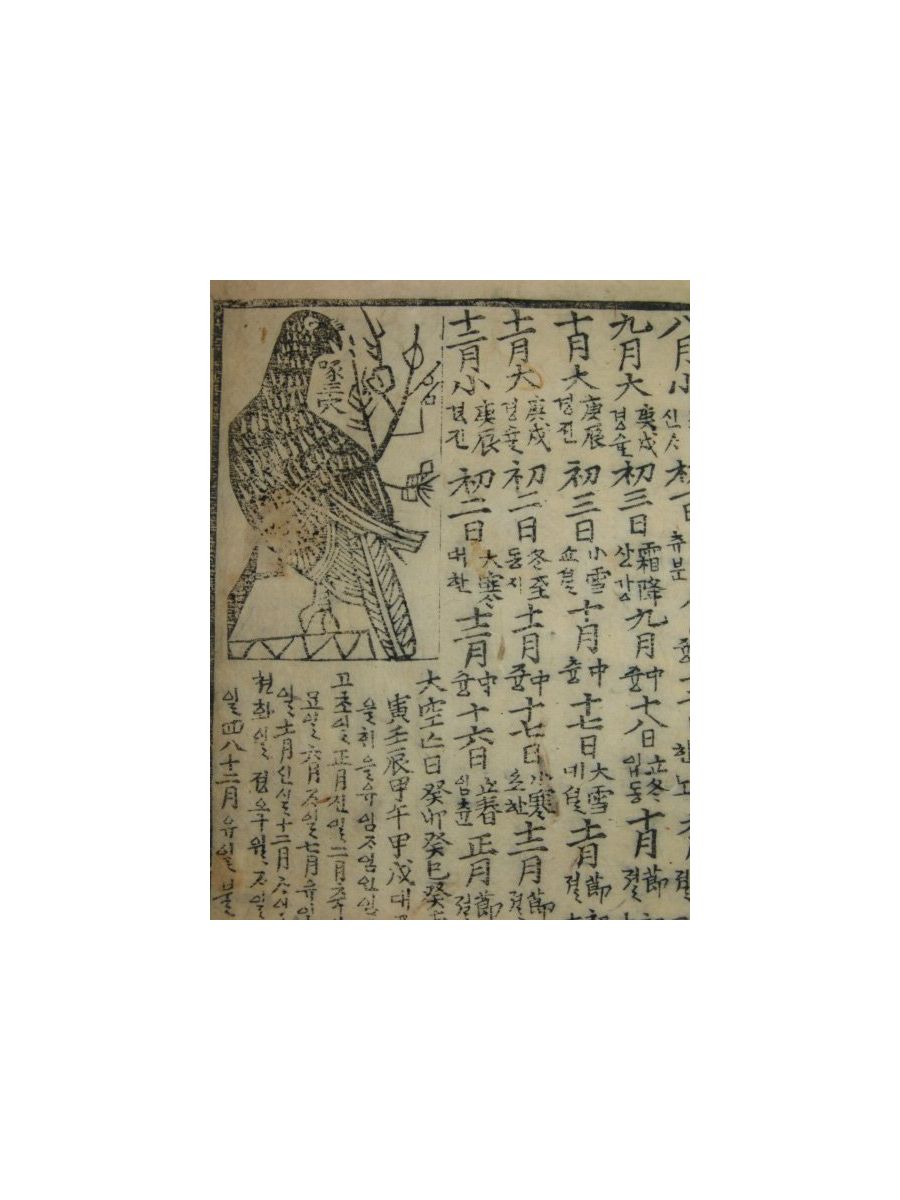 八月小 신 初一日 츄분
九月大 庚戌 경슐 初三日 霜降 상강 九月 中 즁 十八日 立冬 입동 十月 節 졀
十月大 庚辰 경진 初三日 小雪 쇼셜 十月 中 즁 十七日 大雪 대셜 十一月 節 졀
十一月大 庚戌 경슐 初二日 冬至 동지 十一月 中 즁 十七日 小寒 쇼한 十二月 節 졀
十二月小 庚辰 경진 初二日 大寒 대한 十二月 中 즁 十六日 立春 입츈 正月 節 졀
啄三災
大空亡日 癸卯 癸巳 癸
寅 壬辰 甲午 甲戌 대
을휘 을유 임 임인
고초일 正月 진일 二月 츅
묘일 六月 일 七月 유일
일 十一月 신일 十二月
텬화일 졍오구월 일
일 四八十二月 유일 불